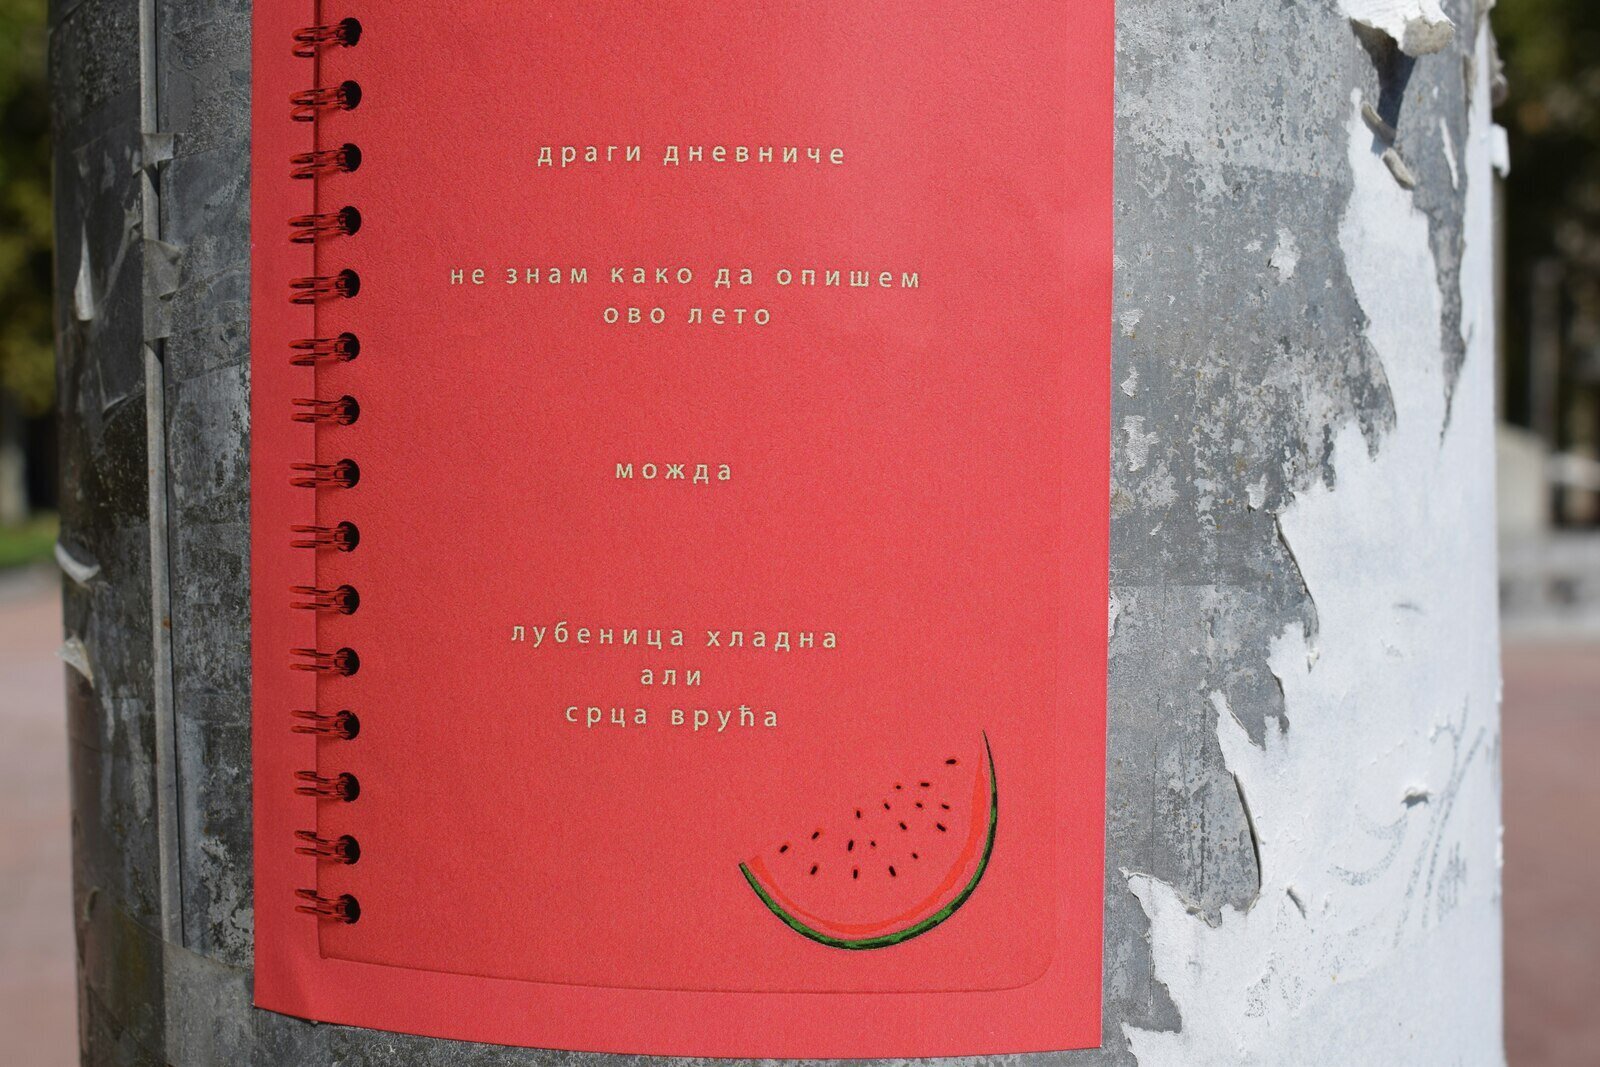 драги дневниче
не знам како да опишем
ово лето
можда
лубеница хладна
али
срца врућа